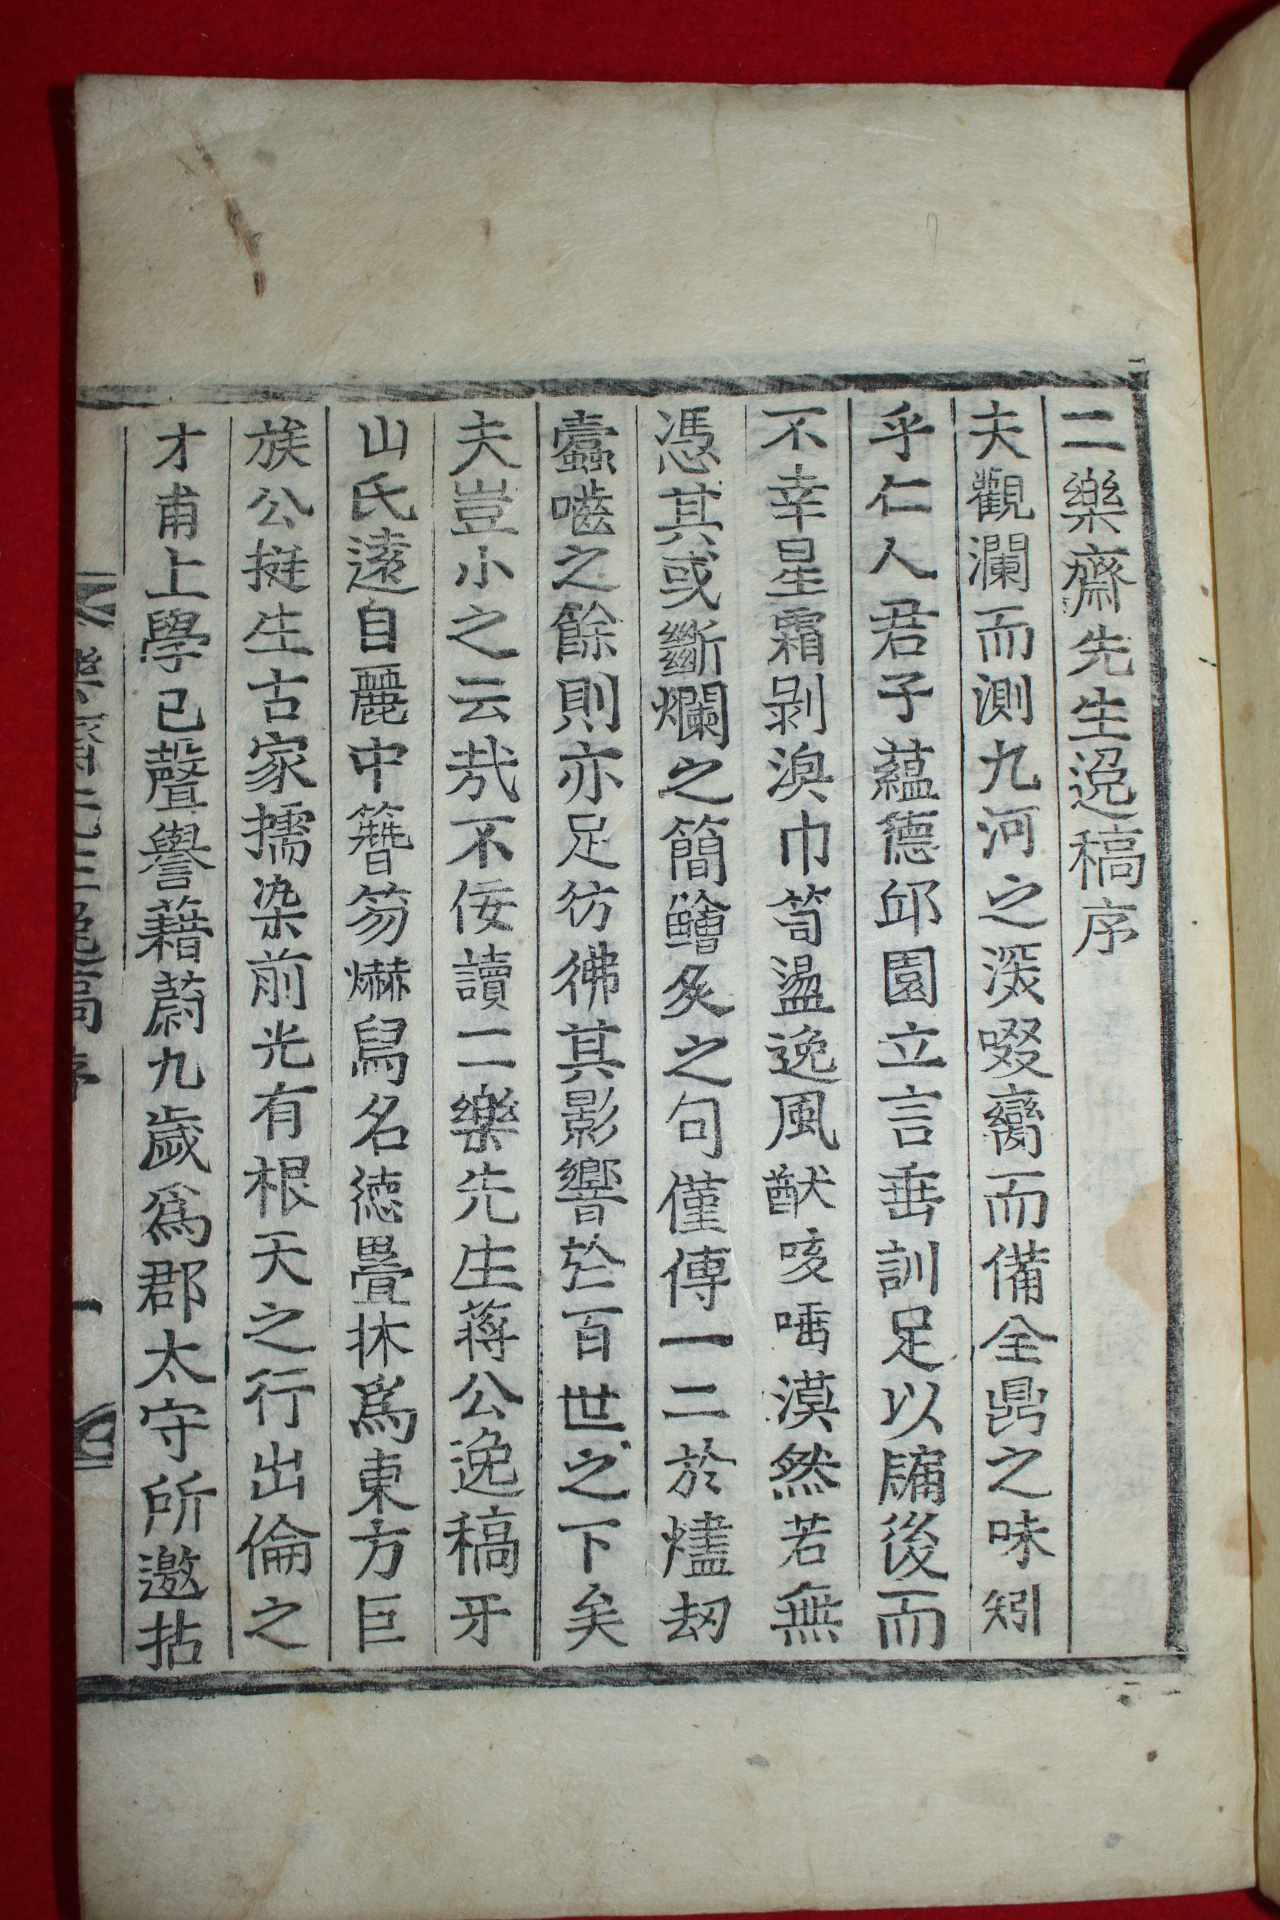 二樂齋先生逸稿序
夫觀瀾而測九河之深啜臠而備全鼎之味矧
乎仁人君子蘊德邱園立言垂訓足以牖後而
不幸星霜剝渙巾笥盪逸風猷咳唾漠然若無
憑其或斷爛之簡鱠炙之句僅傳一二於燼刼
蠹嚙之餘則亦足彷彿其影響於百世之下矣
夫豈小之云哉不佞讀二樂先生蔣公逸稿牙
山氏遠自麗中簪笏爀舃名德疊休爲東方巨
族公挺生古家擩染前光有根天之行出倫之
才甫上學已聲譽藉蔚九歲爲郡太守所邀拈
樂齋先生逸稿序
一